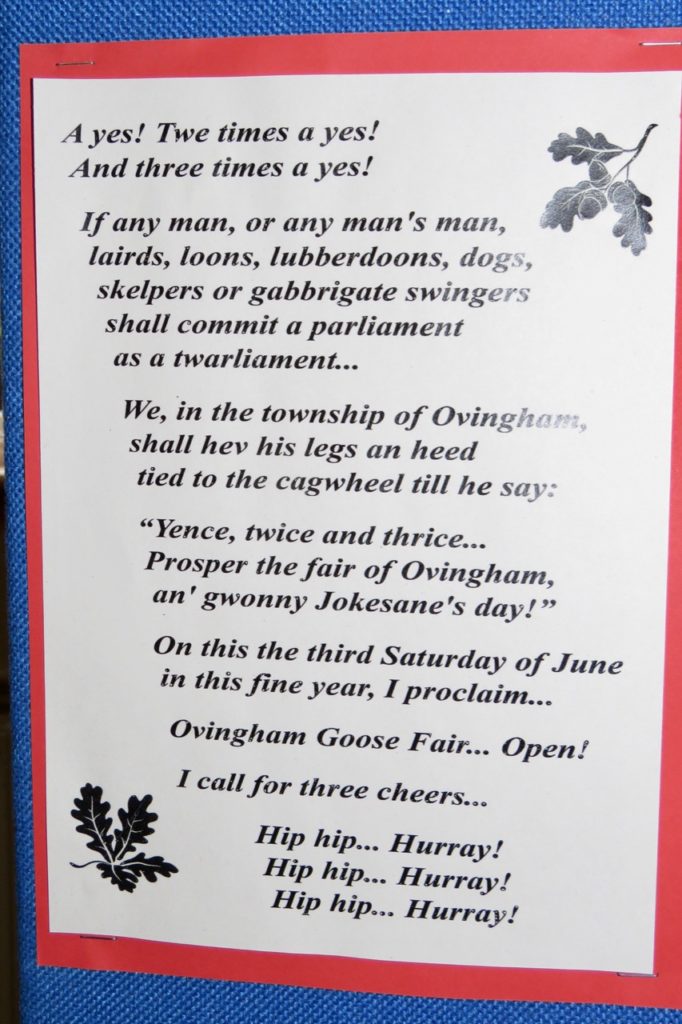 A yes! Twe times a yes!
And three times a yes!
If any man, or any man's man,
lairds, loons, lubberdoons, dogs,
skelpers or gabbrigate swingers
shall commit a parliament
as a twarliament...
We, in the township of Ovingham,
shall hev his legs an heed
tied to the cagwheel till he say:
“Yence, twice and thrice...
Prosper the fair of Ovingham,
an' gwonny Jokesane's day!”
On this the third Saturday of June
in this fine year, I proclaim...
Ovingham Goose Fair... Open!
I call for three cheers...
Hip hip... Hurray!
Hip hip... Hurray!
Hip hip... Hurray!